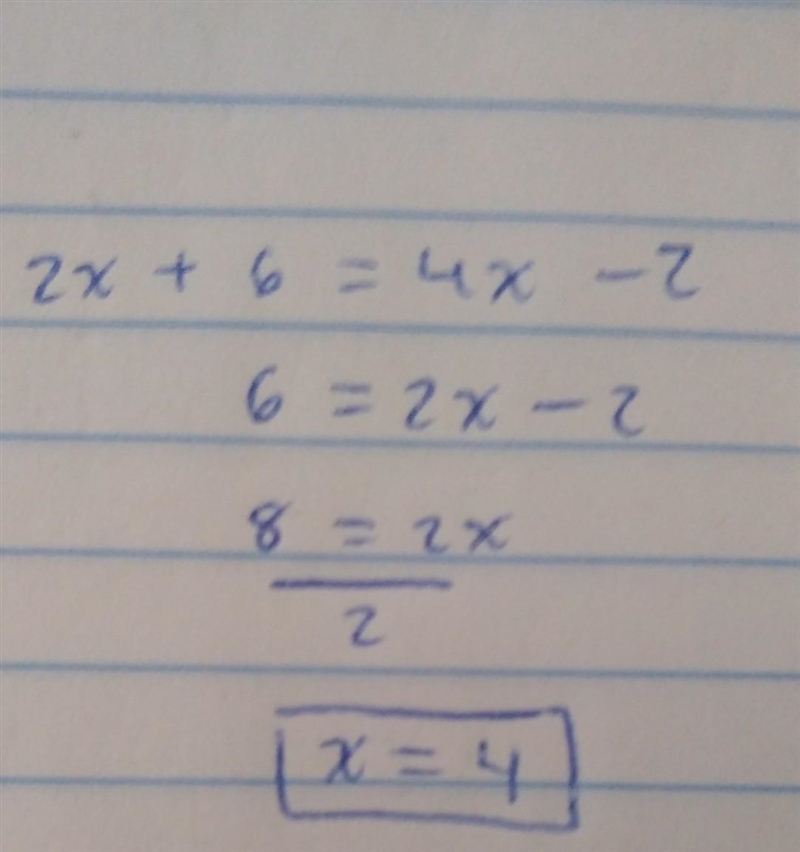 2x + 6 = 4x - 2
6 = 2x - 2
8 = 2x
2
x = 4